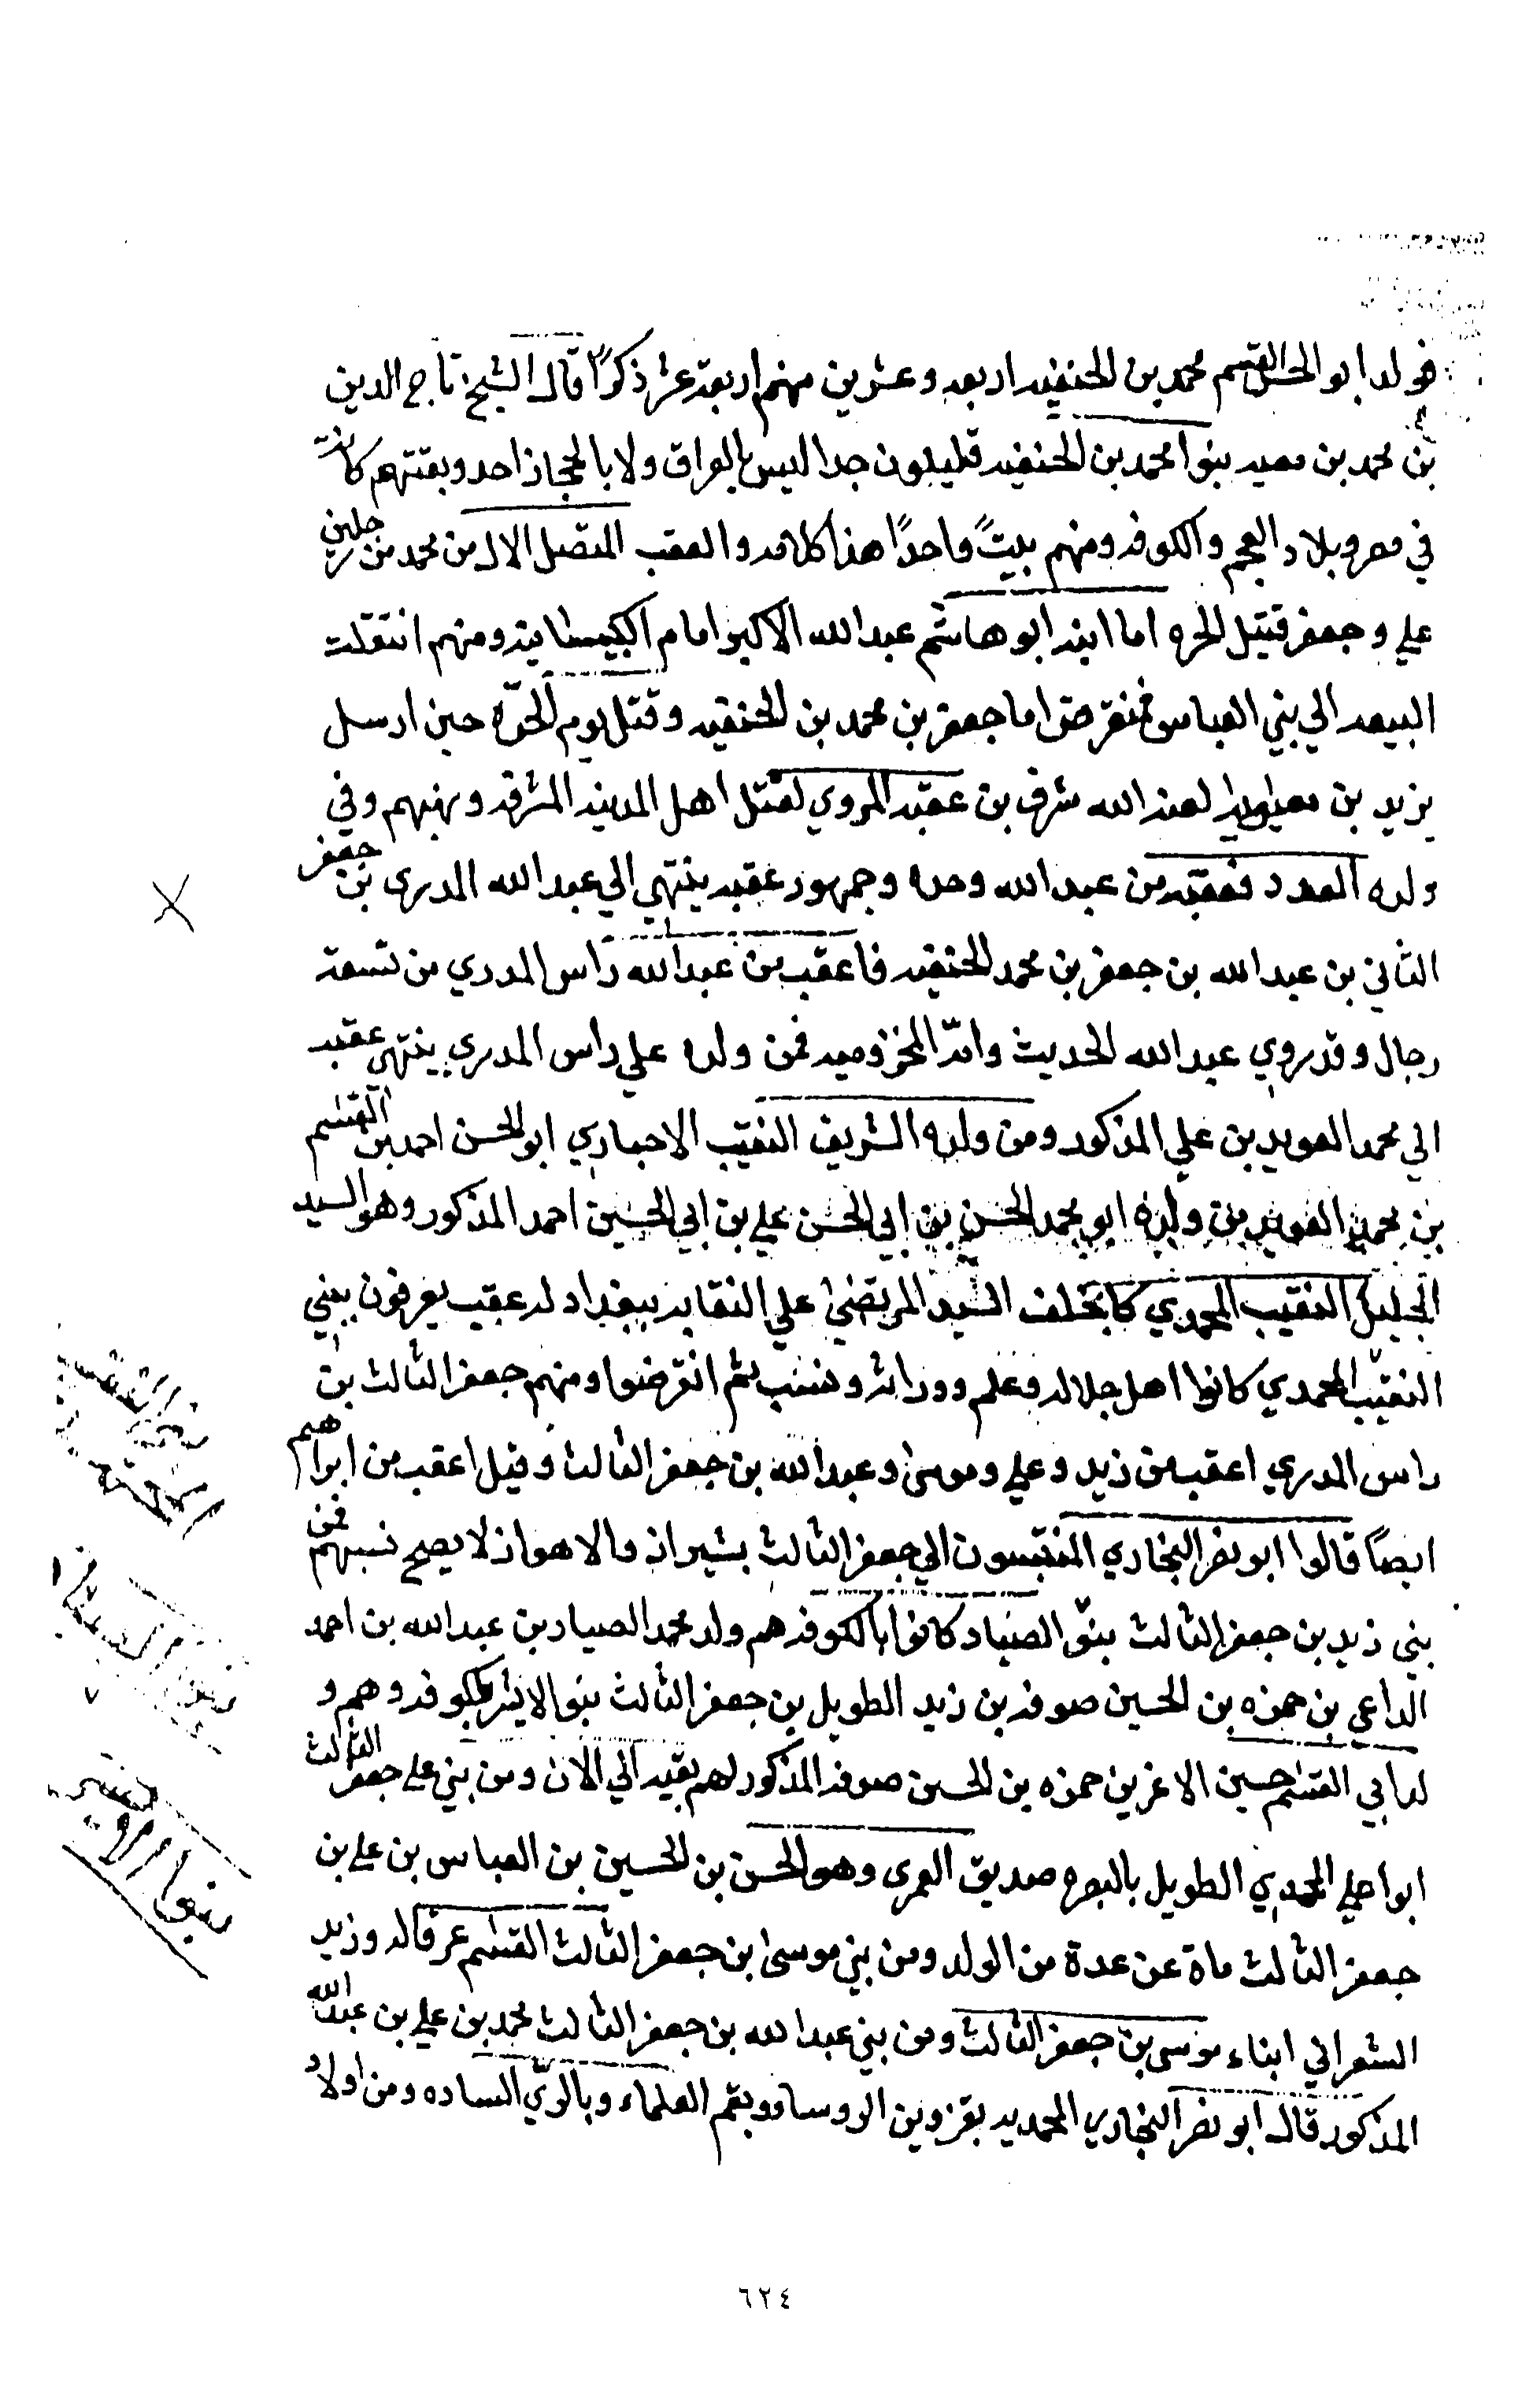 فولد ابو الحسن القسم محمد بن الحنفيه اربعه وعشرين منهم اربعة عشر ذكرًا قال الشيخ تاج الدين
بن محمد بن معيه بنوا محمد بن الحنفيه قليلون جدا ليس بالعراق ولا بالحجاز احد وبقتهم كانت
في مصر وبلاد العجم والكوفه ومنهم بيتً واحدًا هذا كلامه والعقب المتصل الال من محمد من رجلين
علي وجعفر قتيل الحره اما ابنه ابو هاشم عبد الله الاكبر امام الكيسانيه ومنهم انتقلت
البيعه الي بني العباس فمنقرض اما جعفر بن محمد بن الحنفيه وقتل يوم الحرّه حين ارسل
يزيد بن معاويه لعنه الله شرف بن عقبه المروي لقتل اهل المدينه المشرفه ونهبهم وفي
ولده العدد فعقبه من عبد الله وحده وجمهور عقبه ينتهي الي عبد الله المدرى بن جعفر
الثاني بن عبد الله بن جعفر بن محمد الحنفيه فاعقب من عبد الله راس المدري من تسعة
رجال وقد روي عبد الله الحديث وامّه المخزوميه فمن ولده علي راس المدري ينتهي عقبه
الي محمد العويد بن علي المذكور ومن ولده الشريف النقيب الاخباري ابو الحسن احمد بن القسم
بن محمد العويد بن ولده ابو محمد الحسن بن ابي الحسن علي بن ابي الحسين احمد المذكور وهو السيد
الجليل النقيب المحمدي كان يخلف السيد المرتضى علي النقابه ببغداد له عقب يعرفون ببني
النقيب المحمدي كانوا اهل جلاله وعلم ووراثه ونسب ثم انقرضوا ومنهم جعفر الثالث بن
راس المدري اعقب من زيد وعلي وموسى وعبد الله بن جعفر الثالث وقيل اعقب من ابراهيم
ايضًا قالوا ابو نصر البخاري المنتسبون الي جعفر الثالث بشيراز والاهواز لا يصح نسبهم فمن
بني زيد بن جعفر الثالث بنو الصياد كانوا بالكوفه هم ولد محمد الصياد بن عبد الله بن احمد
الداعي بن حمزه بن الحسين صوفه بن زيد الطويل بن جعفر الثالث بنو الايسر بالكوفه وهم و
لد ابي القسم حسين الاغر بن حمزه بن الحسن صوفه المذكور لهم بقيه الي الان ومن بني علي جعفر الثالث
ابوا علي المحمدي الطويل بالبصره صديق العمرى وهو الحسن بن الحسين بن العباس بن علي بن
جعفر الثالث ماة عن عدة من الولد ومن بني موسى بن جعفر الثالث القسم عرقاله وزيد
الشعراني ابناء موسى بن جعفر الثالث ومن بني عبد الله بن جعفر الثالث محمد بن علي بن عبد الله
المذكور قال ابو نصر البخاري المحمديه بقزوين الروسا وبقم العلماء وبالريّ الساده ومن اولاد
بنو الصياد
بنوا الايسر
٦٢٤